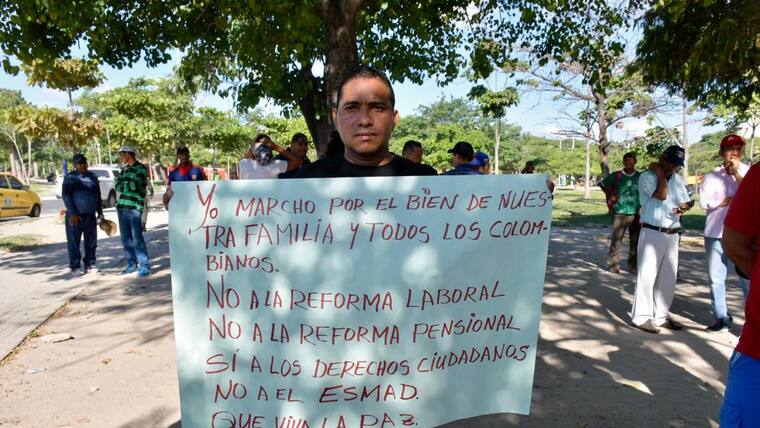 YO MARCHO POR EL BIEN DE NUES-
TRA FAMILIA Y TODOS LOS COLOM-
BIANOS.
NO A LA REFORMA LABORAL
NO A LA REFORMA PENSIONAL
SÍ A LOS DERECHOS CIUDADANOS
NO A EL ESMAD.
QUE VIVA LA PAZ.